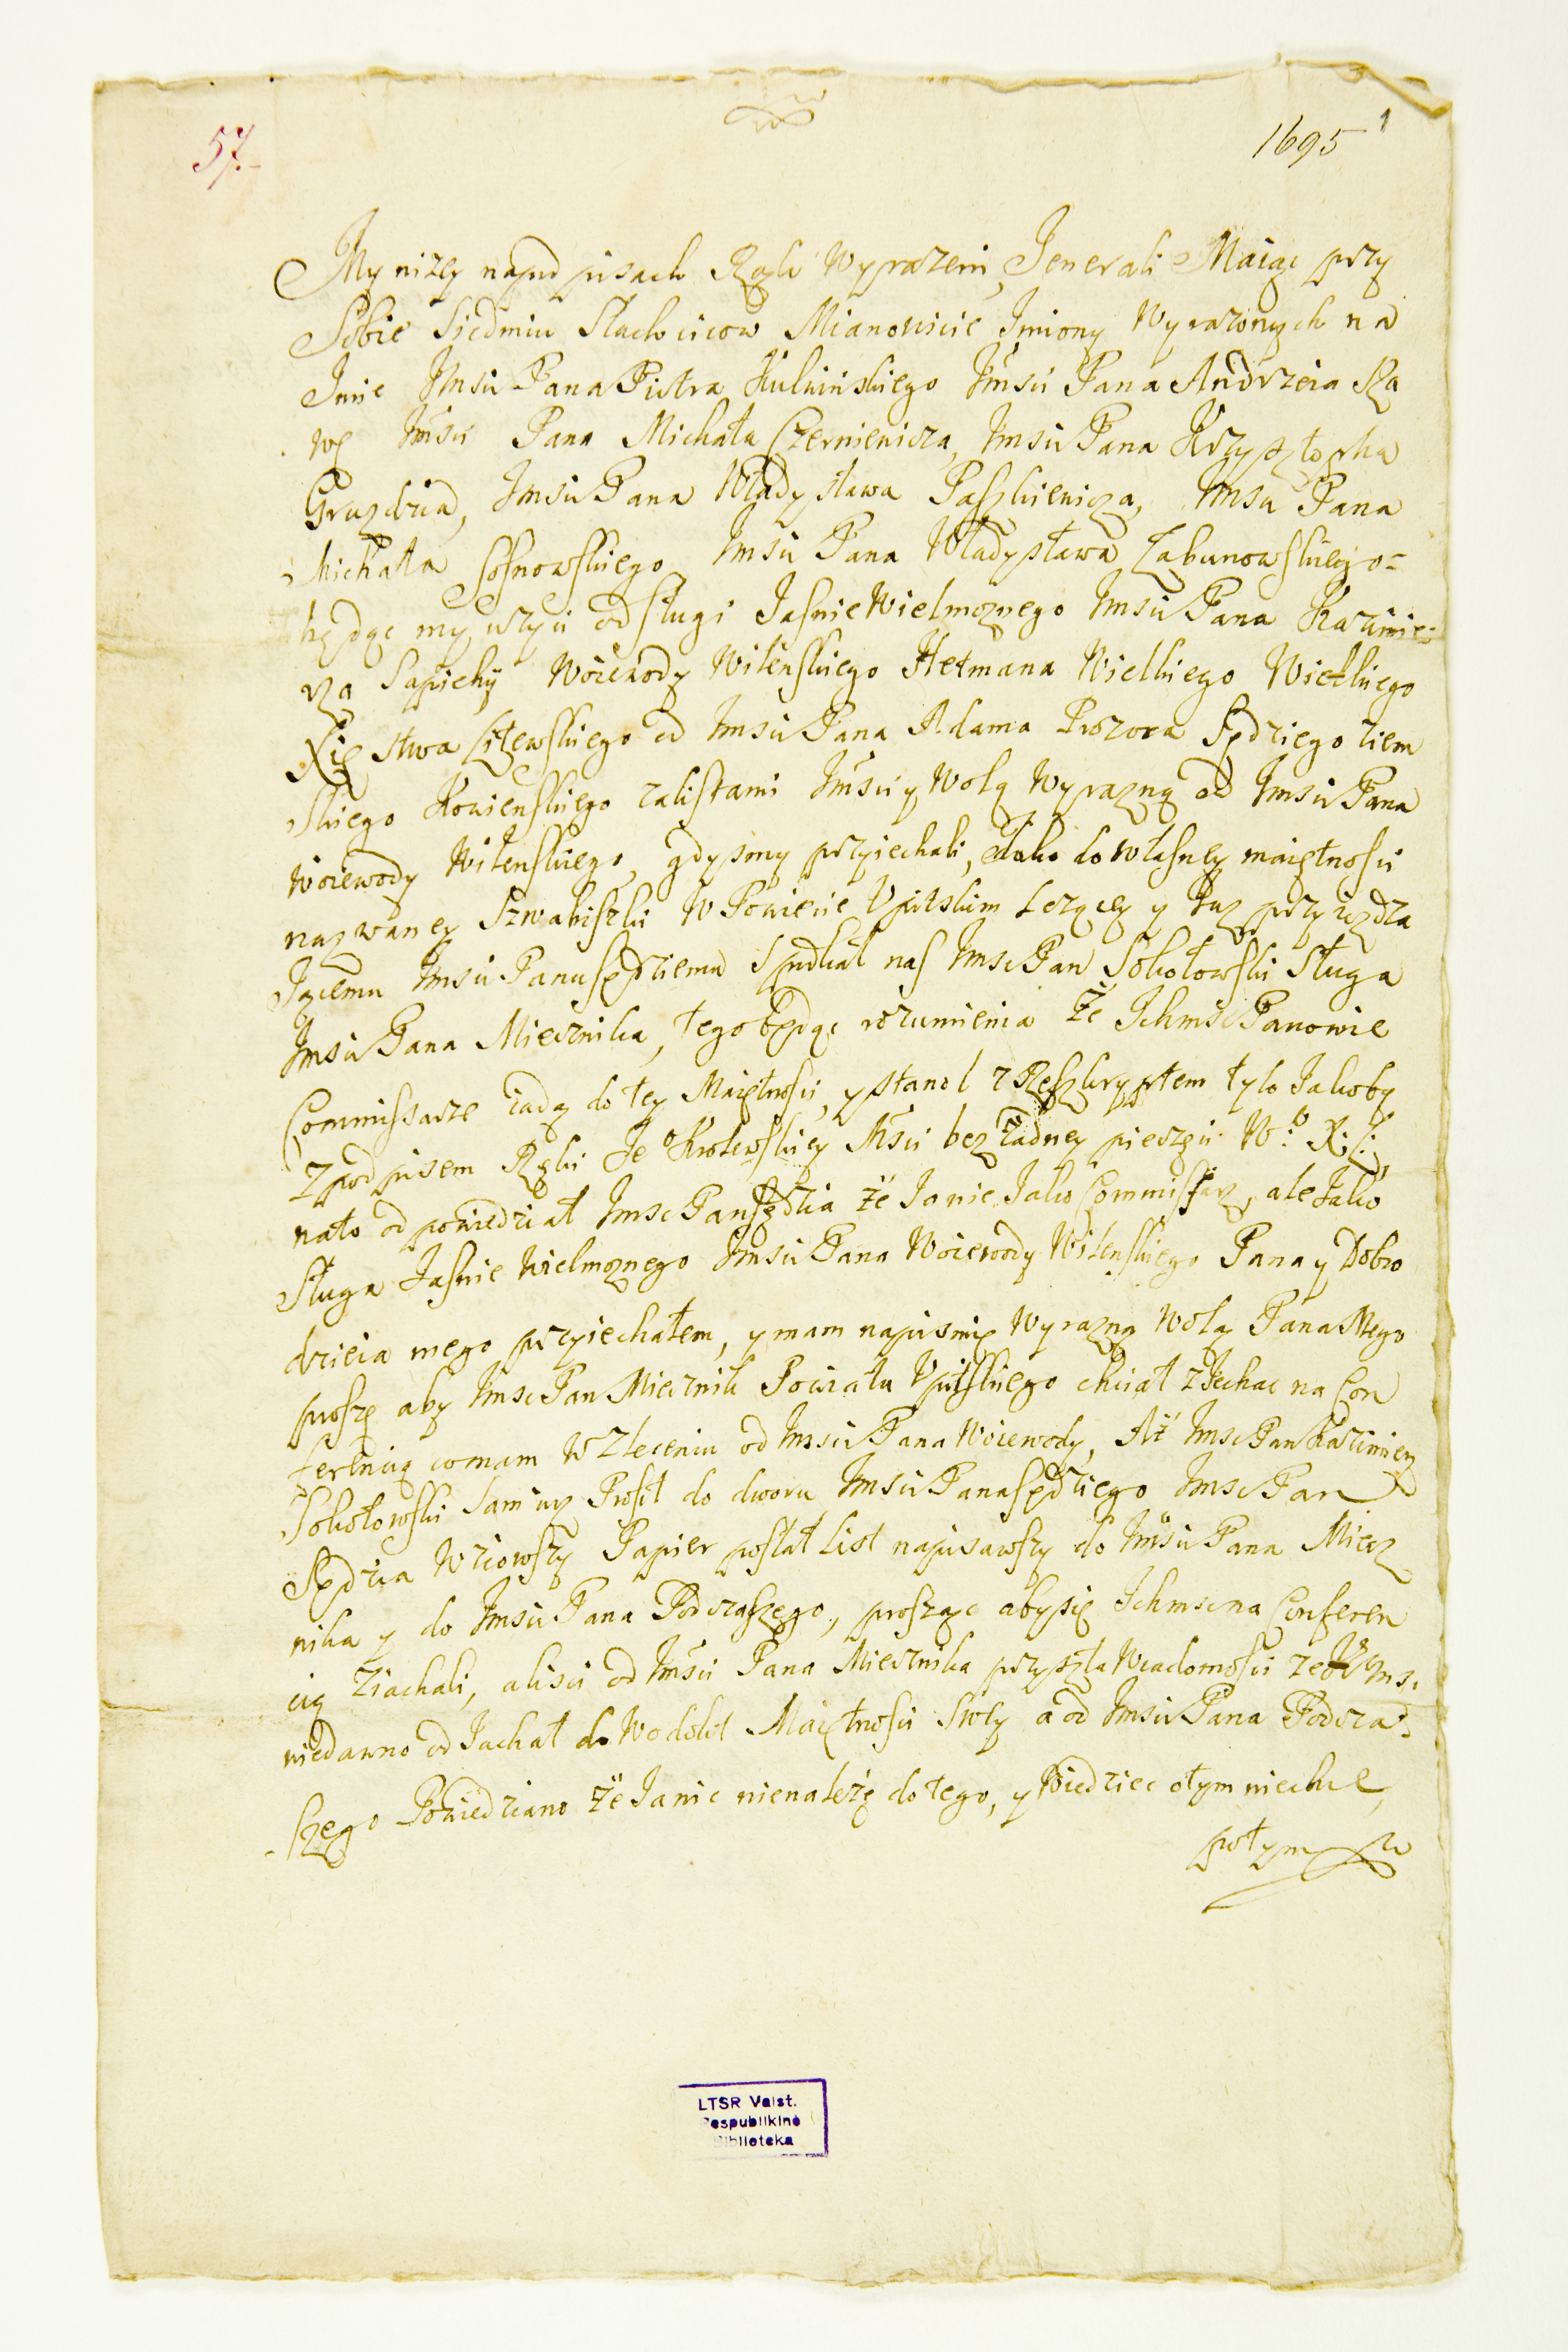 57.
1695
1
My nizey napod pisach Rąk wyrazeni, Jenerali Maiąc przy
Sobie Siedmiu Slachcicow Mianowicie Jmiony Wyrazonych na
Jmie Jmsci Pana Piotra Kulwinskiego Jmsci Pana Andrzeia Ra
wę Jmsci Pana Michała Czerniewicza, Jmsci Pana Krzysztopha
Gruzdzia, Jmsci Pana Władysława Paszkiewicza, Jmsci Pana
Michała Sosnowskiego Jmsci Pana Władysława Łabunowskiego=
będąc my uzyci od sługi Jasnie Wielmoznego Jmsci Pana Kazimie=
rza Sapiehy Woiewody Wilenskiego Hetmana Wielkiego Wielkiego
Xięstwa Litewskiego od Jmsci Pana Adama Prozora Sędziego ziem
skiego Kowienskiego zalistami Jmsci y Wolą Wyrazną od Jmsci Pana
Woiewody Wilenskiego, gdysmy przyiechali, Jako do własney maiętnosci
nazwaney Szwabiszki W Powiecie Upitskim Lezącey y tuz przyiezdza
Jącemu Jmsci Panu sędziemu Spotkał nas Jmsc Pan Sokołowski Sługa
Jmsci Pana Miecznika, tego będąc rozumienia Że Jchmsc Panowie
Commissarze iadą do tey Maiętnosci, y stanoł z Reszkryptem tylo Jakoby
z podpisem Ręki Je° Krolewskiey Msci bez Żadney pieczęci W:° X: L:,
nato odpowiedział Jmsc Pan sędzia że Ja nie Jako Commissarz, ale Jako
Sługa Jasnie Wielmoznego Jmsci Pana Woiewody Wilenskiego Pana y Dobro
dzieia mego przyiechałem, y mam napismie Wyrazną Wolą Pana Mego
proszę aby Jmsc Pan Miecznik Powiatu Upitskiego chciał zJechac na Con
ferencią co mam W Zleceniu od Jmsci Pana Woiewody, Aż Jmsc Pan Kazimierz
Sokołowski Sam iuz Prosił do dworu Jmsci Pana sędziego Jmsc Pan
Sędzia Wziowszy Papier posłał List napisawszy do Jmsci Pana Miecz
nika y do Jmsci Pana Podczaszego, prosząc aby się Jchmsc na Conferen
cią Ziachali, alisci od Jmsci Pana Miecznika przyszła Wiadomosci ze Jmsc
niedawno od Jachał do Wodokt Maiętnosci Swoy a od Jmsci Pana Podcza=
szego Powiedziano że Ja nic nienależę do tego, y Wiedziec otym niechce,
potym
LTSR Valst.
Respublikinė
Biblioteka